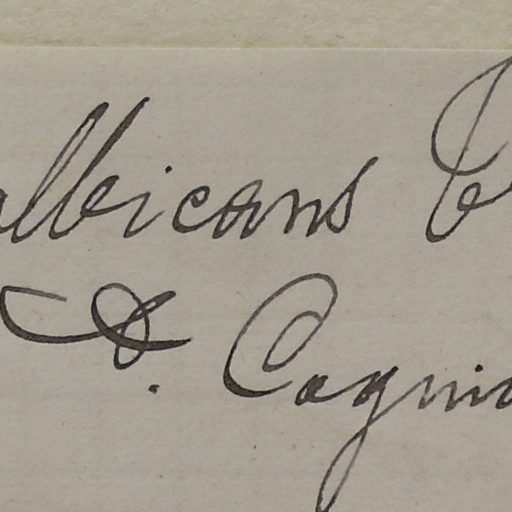 albicans
A. Cogni